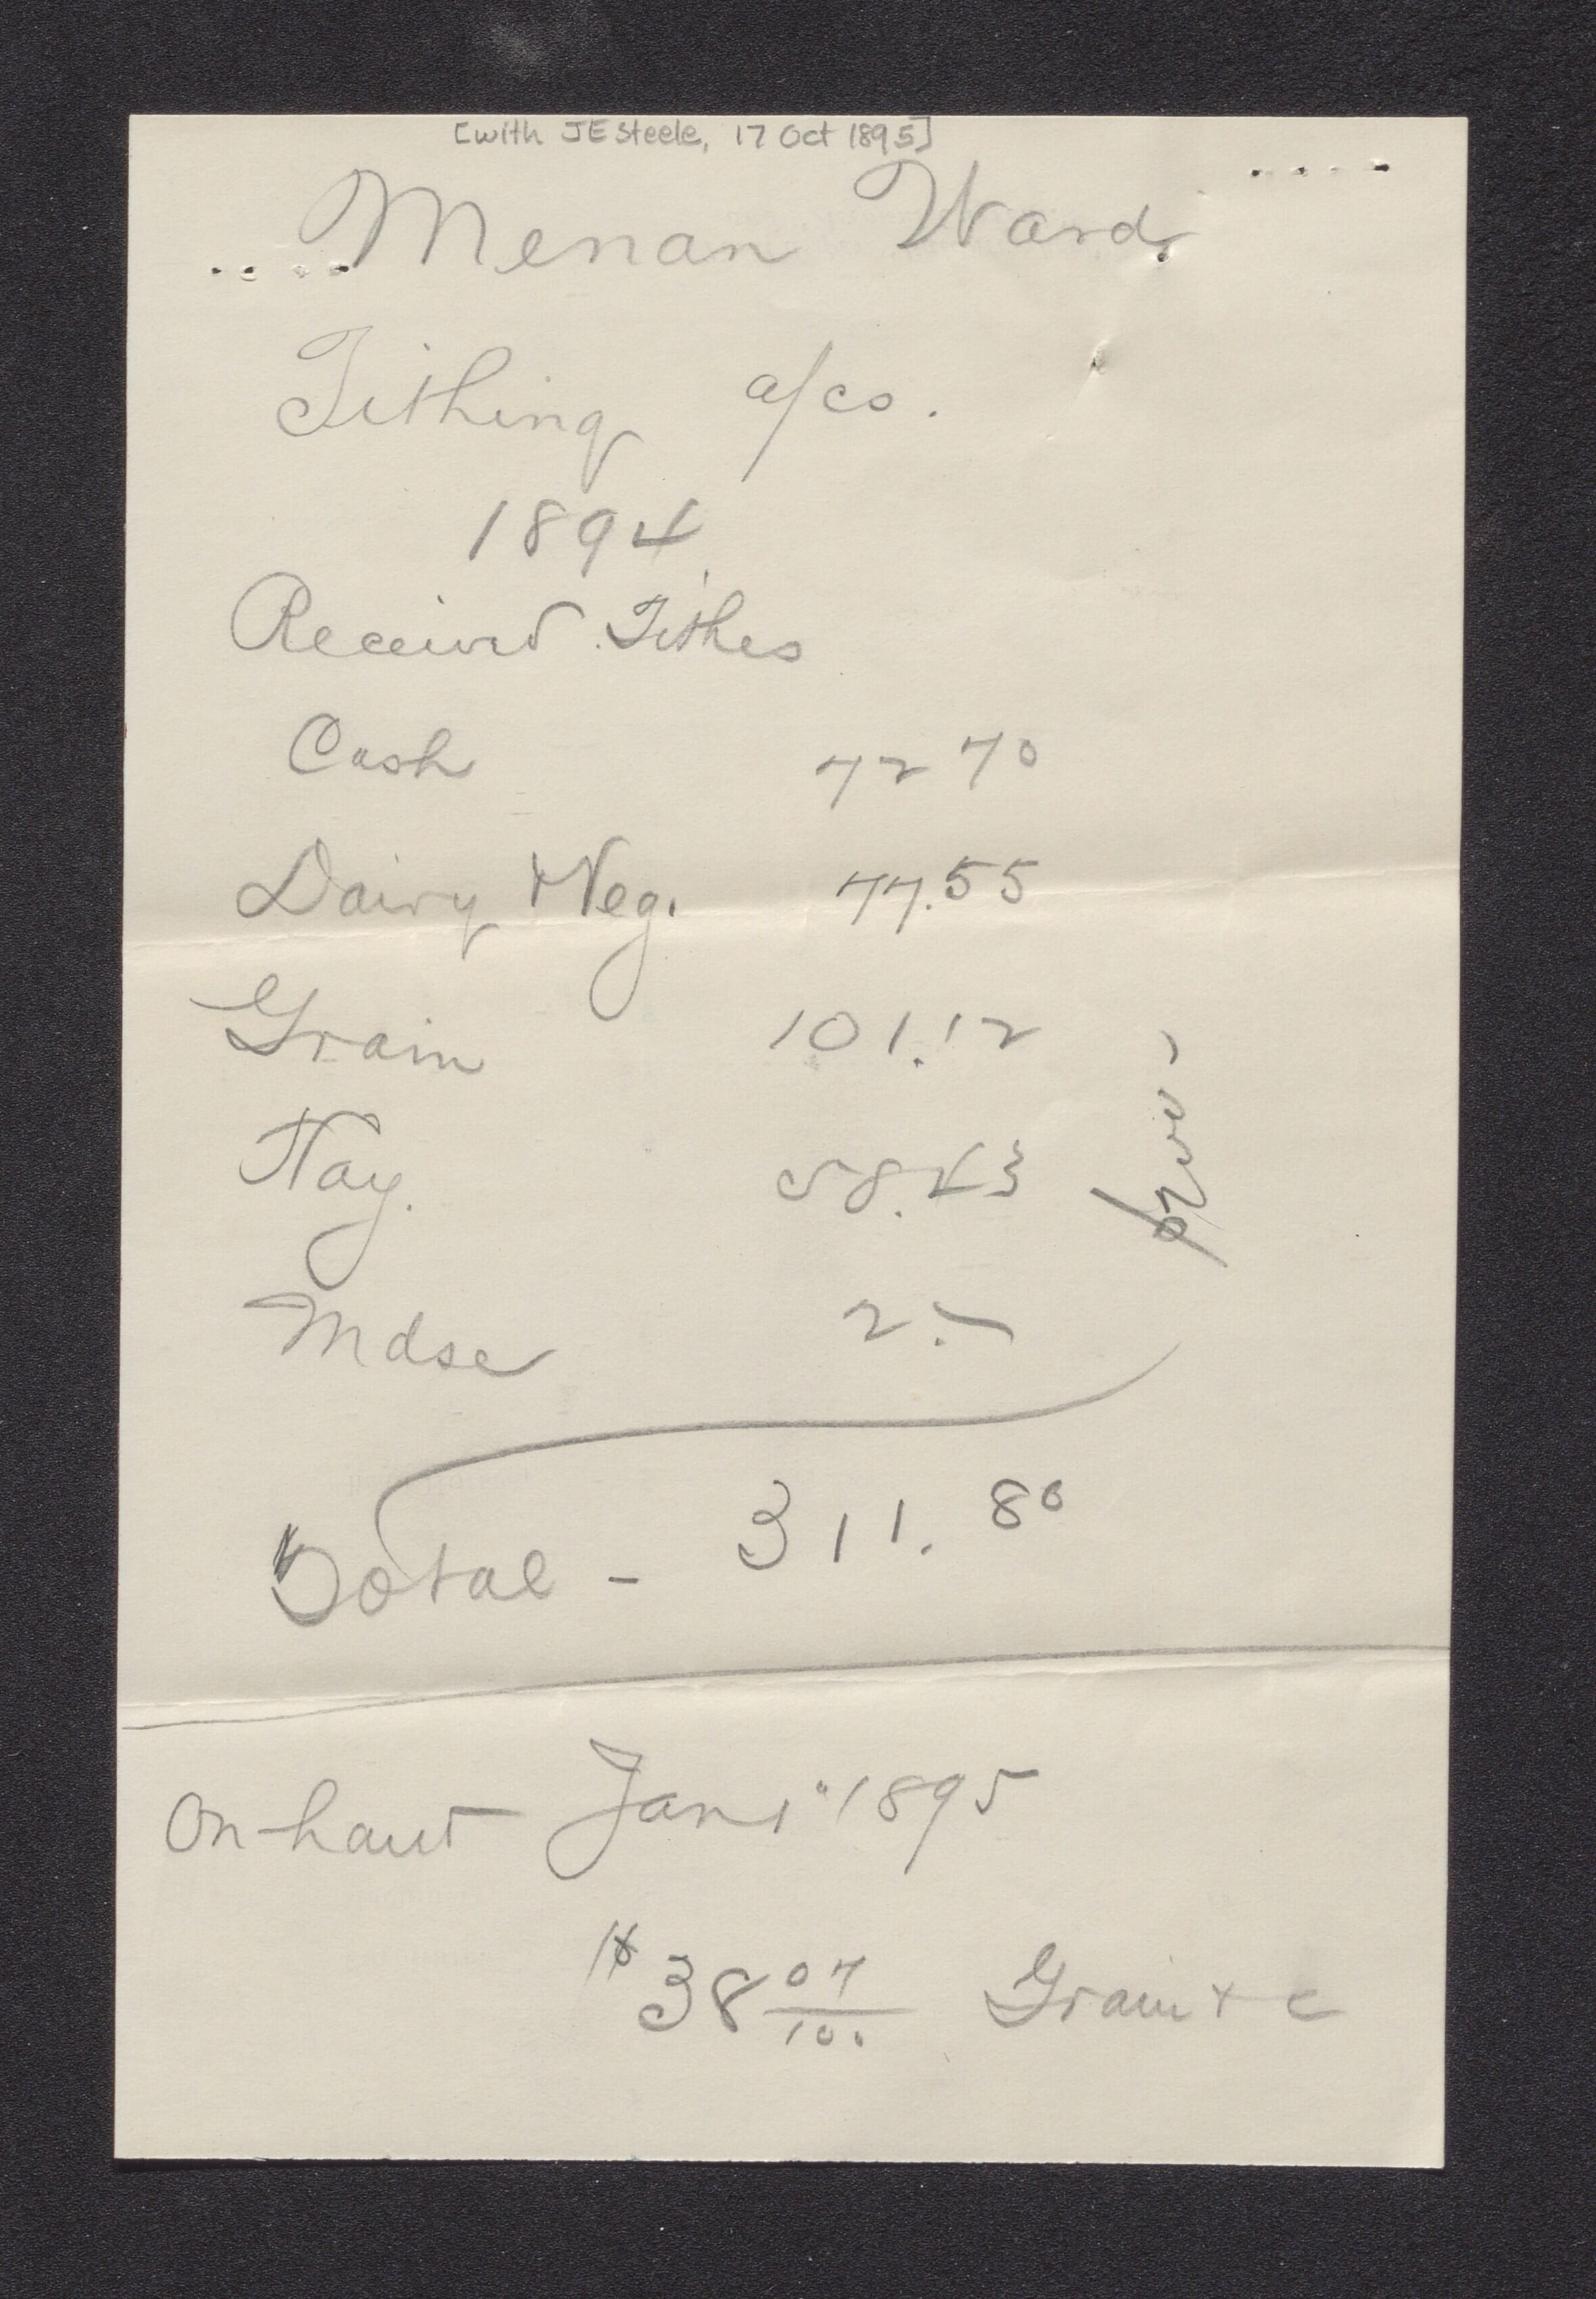 [with JE Steele, 17 Oct 1895]
Menan Ward
Tithing a/co.
1894
Received Tithes
Cash 72 70
Dairy & Veg. 77.55
Grain 101.12
Hay. 58.43
Mdse 2.—
Total - 311.80
On hand Jan 1" 1895
$38 07/100 Grain & c